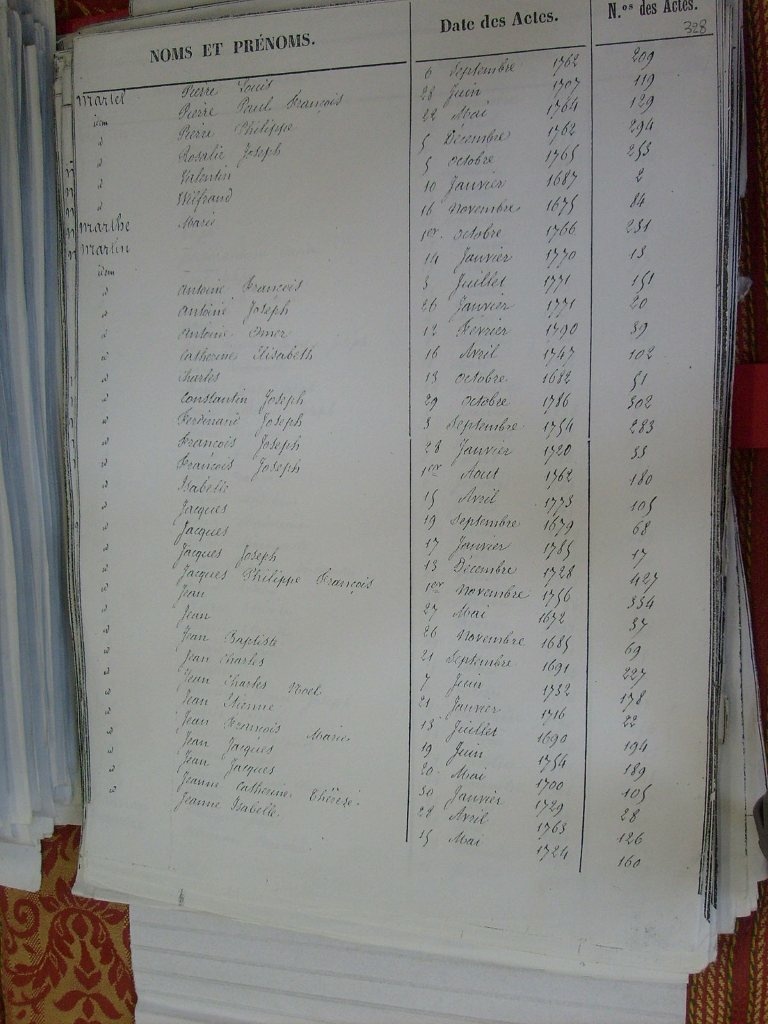 328
NOMS ET PRÉNOMS. Date des Actes. N.os des Actes.
Martel Pierre Louis 6 Septembre 1762 209
idem Pierre Paul François 28 Juin 1707 119
d Pierre Philippe 22 Mai 1764 129
d Rosalie Joseph 5 Décembre 1762 294
d Valentin 5 octobre 1765 253
d Wilfrand 10 Janvier 1687 2
Marthe Marie 16 novembre 1675 84
Martin 1er octobre 1766 231
idem 14 Janvier 1770 13
d Antoine François 3 Juillet 1771 151
d Antoine Joseph 26 Janvier 1771 20
d Antoine Omer 12 Février 1790 39
d Catherine Elisabeth 16 Avril 1747 102
d Charles 13 octobre 1682 51
d Constantin Joseph 29 octobre 1786 302
d Ferdinand Joseph 3 Septembre 1754 283
d François Joseph 28 Janvier 1720 33
d François Joseph 1er Aout 1762 180
d Isabelle 15 Avril 1773 105
d Jacques 19 Septembre 1679 68
d Jacques 17 Janvier 1785 17
d Jacques Joseph 13 Décembre 1728 427
d Jacques Philippe François 1er novembre 1756 334
d Jean 27 Mai 1672 37
d Jean 26 novembre 1685 69
d Jean Baptiste 21 Septembre 1691 227
d Jean Charles 7 Juin 1732 178
d Jean Charles Noel 21 Janvier 1716 22
d Jean Etienne 13 Juillet 1690 194
d Jean François Marie 19 Juin 1754 189
d Jean Jacques 20 Mai 1700 105
d Jean Jacques 30 Janvier 1729 28
d Jeanne Catherine Thérèse 28 Avril 1763 126
d Jeanne Isabelle 15 Mai 1724 160